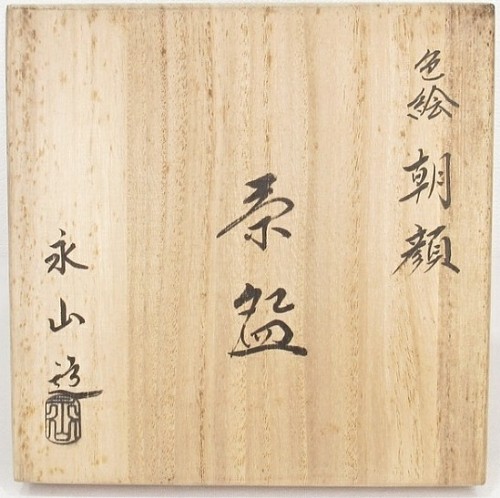 色絵 朝顔
茶盌
永山造